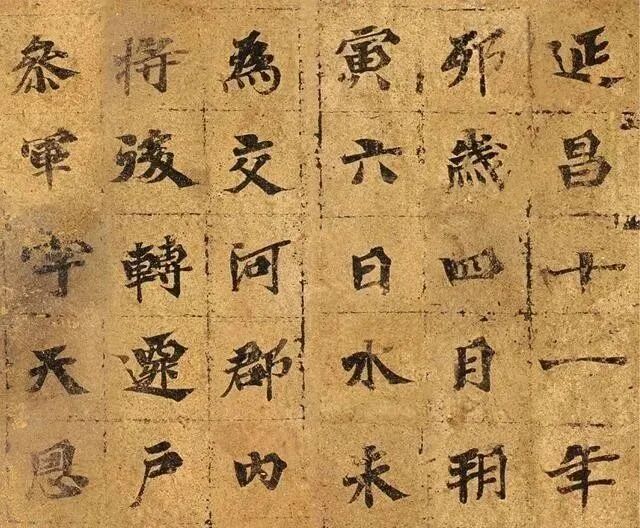 延昌十一年
卯歲四月朔
寅六日水未
為交河郡內
將後轉遷戶
參軍字天恩